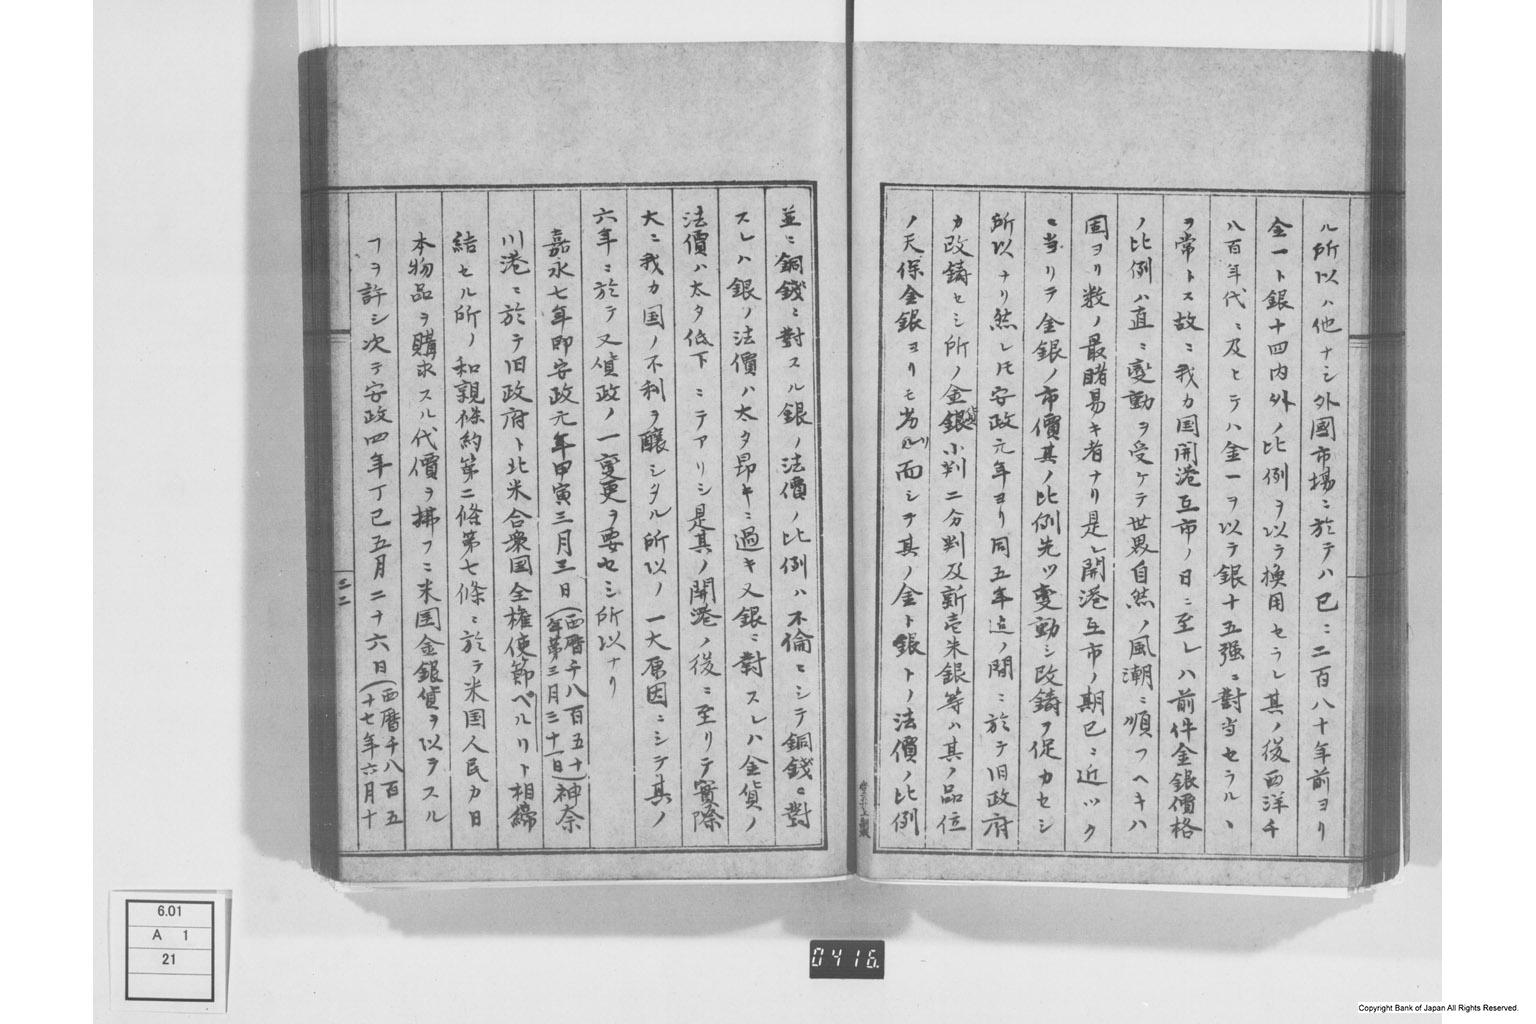 ル所以ハ他ナシ外國市場ニ於テハ已ニ二百八十年前ヨリ
金一ト銀十四内外ノ比例ヲ以テ換用セラレ其ノ後西洋千
八百年代ニ及ヒテハ金一ヲ以テ銀十五强ニ對当セラルヽ
ヲ常トス故ニ我カ国開港互市ノ日ニ至レハ前件金銀價格
ノ比例ハ直ニ変動ヲ受ケテ世界自然ノ風潮ニ順フヘキハ
固ヨリ数ノ最睹易キ者ナリ是レ開港互市ノ期已ニ近ツク
ニ当リテ金銀ノ市價其ノ比例先ツ変動シ改鋳ヲ促カセシ
所以ナリ然レトモ安政元年ヨリ同五年迄ノ間ニ於テ旧政府
カ改鋳セシ所ノ金銀貨小判二分判及新壱朱銀等ハ其ノ品位
ノ天保金銀ヨリモ劣レリ而シテ其ノ金ト銀トノ法價ノ比例
並ニ銅錢ニ對スル銀ノ法價ノ比例ハ不倫ニシテ銅錢ニ對
スレハ銀ノ法價ハ太タ昂キニ過キ又銀ニ對スレハ金貨ノ
法價ハ太タ低下ニテアリシ是其ノ開港ノ後ニ至リテ實際
大ニ我カ国ノ不利ヲ醸シタル所以ノ一大原因ニシテ其ノ
六年ニ於テ又貨政ノ一変更ヲ要セシ所以ナリ
嘉永七年即安政元年甲寅三月三日(西暦千八百五十
年第三月三十一日)神奈
川港ニ於テ旧政府ト北米合衆国全權使節ペルリト相締
結セル所ノ和親條約第二條第七條ニ於テ米国人民カ日
本物品ヲ購求スル代價ヲ拂フニ米国金銀貨ヲ以テスル
フヲ許シ次テ安政四年丁巳五月二十六日(西暦千八百五
十七年六月十
二二
6.01
A 1
21
0416
Copyright Bank of Japan All Rights Reserved.